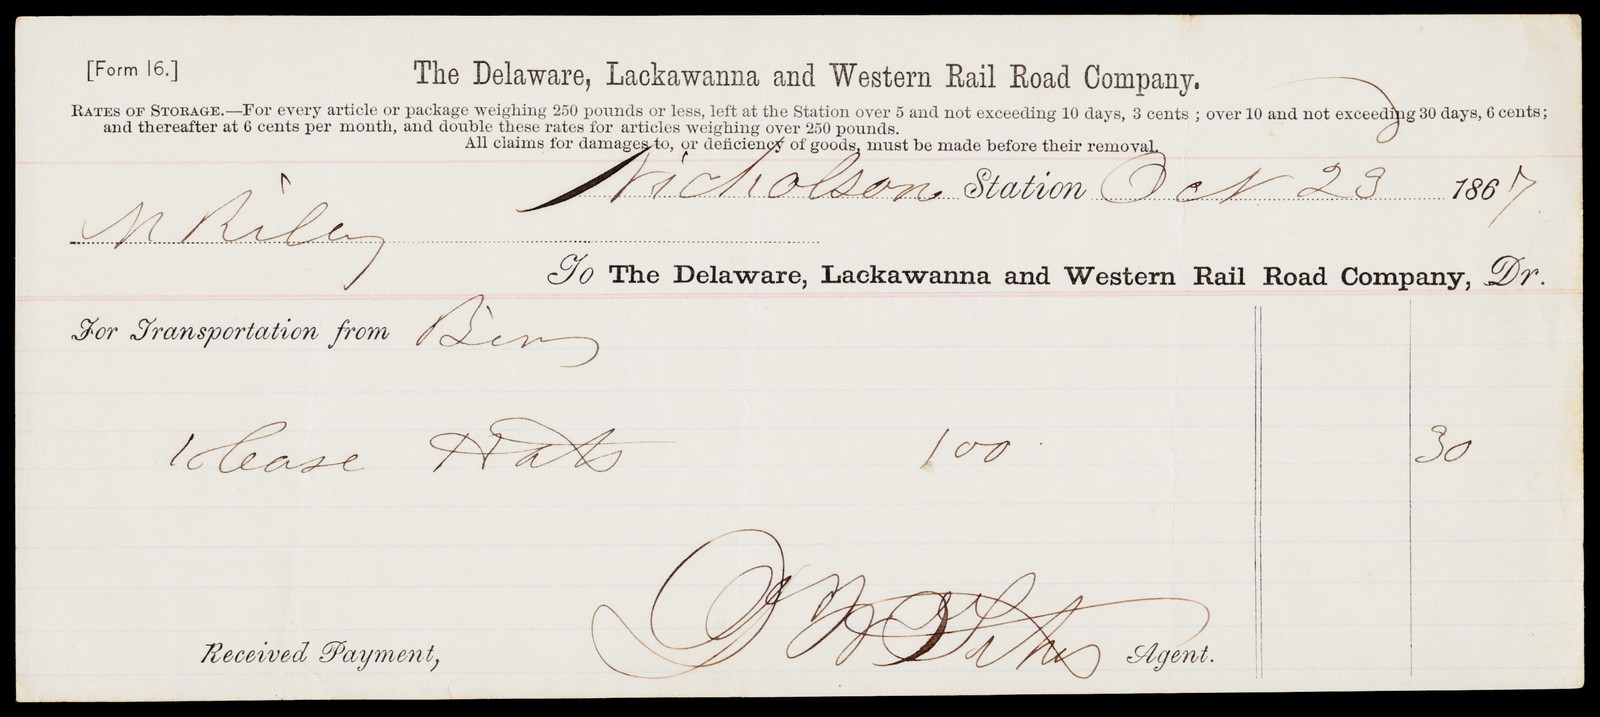 [Form 16.]
The Delaware, Lackawanna and Western Rail Road Company.
RATES OF STORAGE.—For every article or package weighing 250 pounds or less, left at the Station over 5 and not exceeding 10 days, 3 cents ; over 10 and not exceeding 30 days, 6 cents;
and thereafter at 6 cents per month, and double these rates for articles weighing over 250 pounds.
All claims for damages to, or deficiency of goods, must be made before their removal.
Nicholson Station Oct 23 1867
M Riley
To The Delaware, Lackawanna and Western Rail Road Company, Dr.
For Transportation from Bing
1 Case Hats 100 30
Received Payment, Agent.